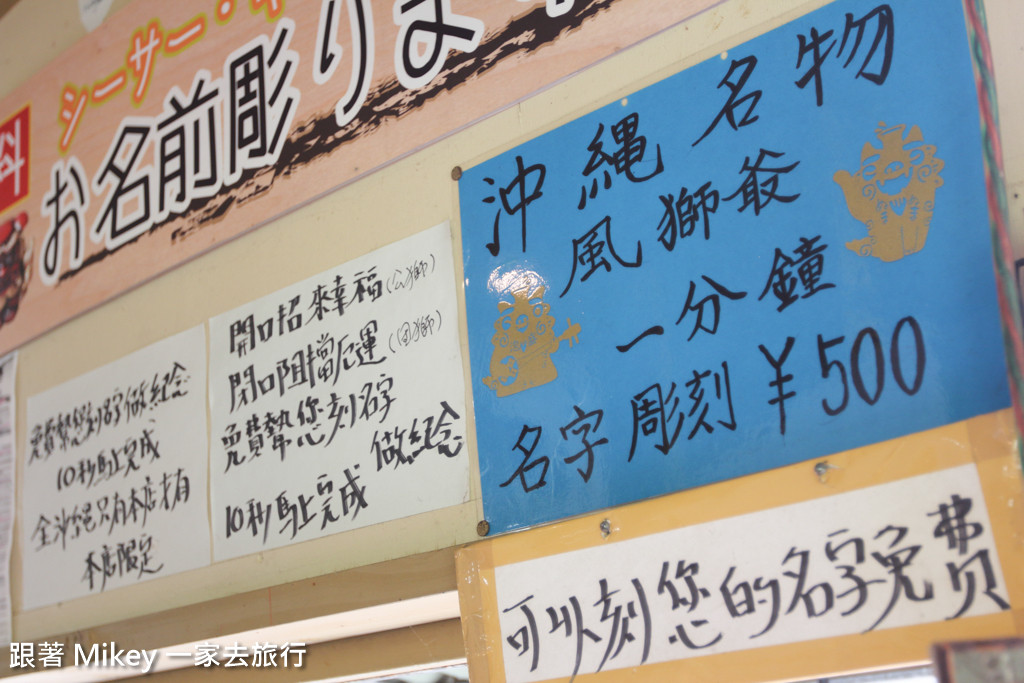 シーサー・キ
お名前彫りま
料
沖縄名物
風獅爺
一分鐘
名字彫刻￥500
開口招來幸福(公獅)
閉口阻擋厄運(母獅)
免費幫您刻名字
做紀念
10秒馬上完成
免費幫您刻名字做紀念
10秒馬上完成
全沖縄只有本店才有
本店限定
可以刻您的名字免费
跟著 Mikey 一家去旅行